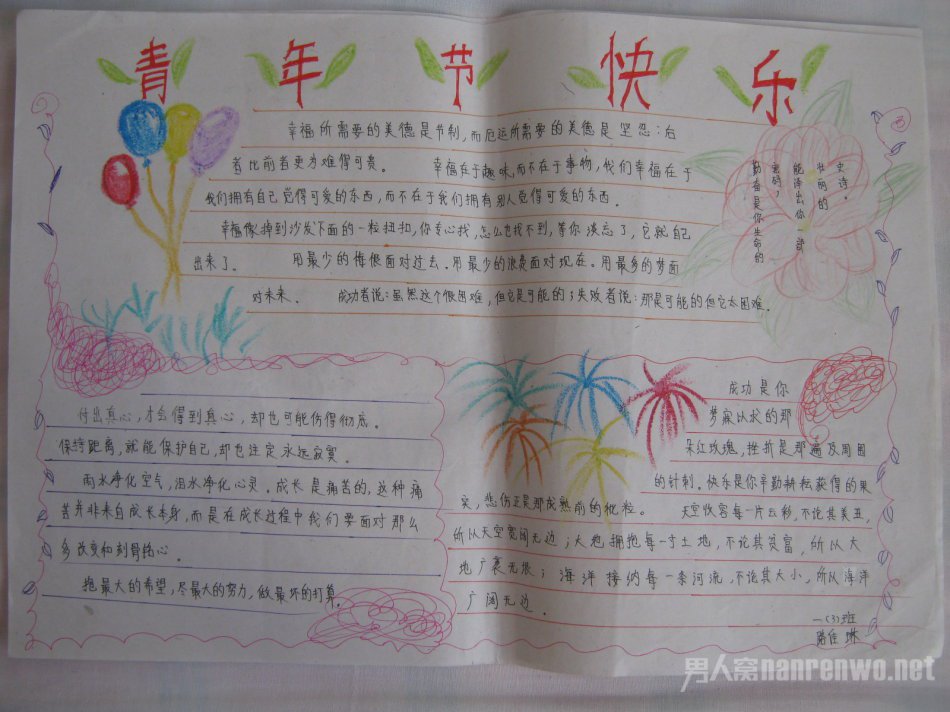 青年节快乐
幸福所需要的美德是节制，而厄运所需要的美德是坚忍：后
者比前者更为难得可贵。 幸福在于趣味，而不在于事物，我们幸福在于
我们拥有自己觉得可爱的东西，而不在于我们拥有别人觉得可爱的东西。
幸福像掉到沙发下面的一粒纽扣，你专心找，怎么也找不到，等你淡忘了，它就自己
出来了。 用最少的悔恨面对过去。用最少的浪费面对现在。用最多的梦面
对未来。 成功者说：虽然这个很困难，但它是可能的了失败者说：那是可能的但它太困难。
勤奋是你生命的
密码，
能译出你一部
壮丽的
史诗。
付出真心，才会得到真心，却也可能伤得彻底。
保持距离，就能保护自己，却也注定永远寂寞。
雨水净化空气，泪水净化心灵。成长是痛苦的，这种痛
苦并非来自成长本身，而是在成长过程中我们要面对那么
多改变和刻骨铭心。
抱最大的希望，尽最大的努力，做最坏的打算。
成功是你
梦寐以求的那
朵红玫瑰，挫折是那遍及周围
的针刺。快乐是你辛勤耕耘获得的果
实，悲伤正是那成熟前的秕粒。 天空收容每一片云彩，不论其美丑，
所以天空宽阔无边；大地拥抱每一寸土地，不论其贫富，所以大
地广袤无垠；海洋接纳每一条河流，不论其大小，所以海洋
广阔无边。
一（3）班
男人窝nanrenwo.net